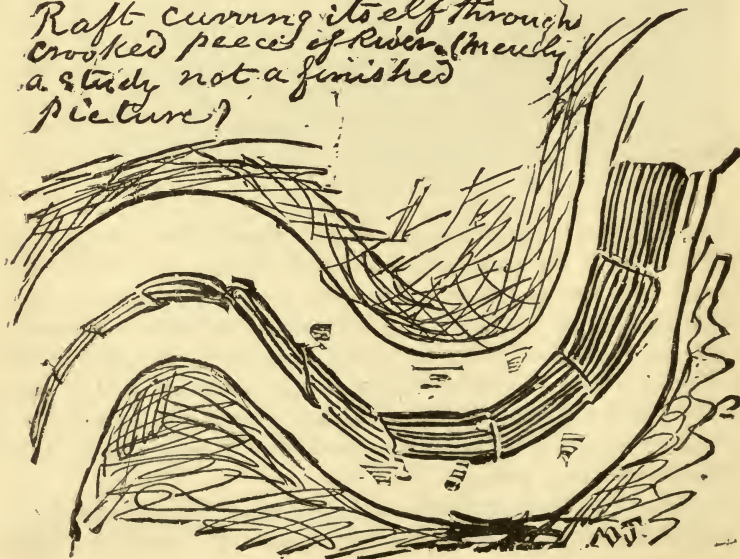 Raft curving itself through
crooked peece of River (merely
a study not a finished
picture)